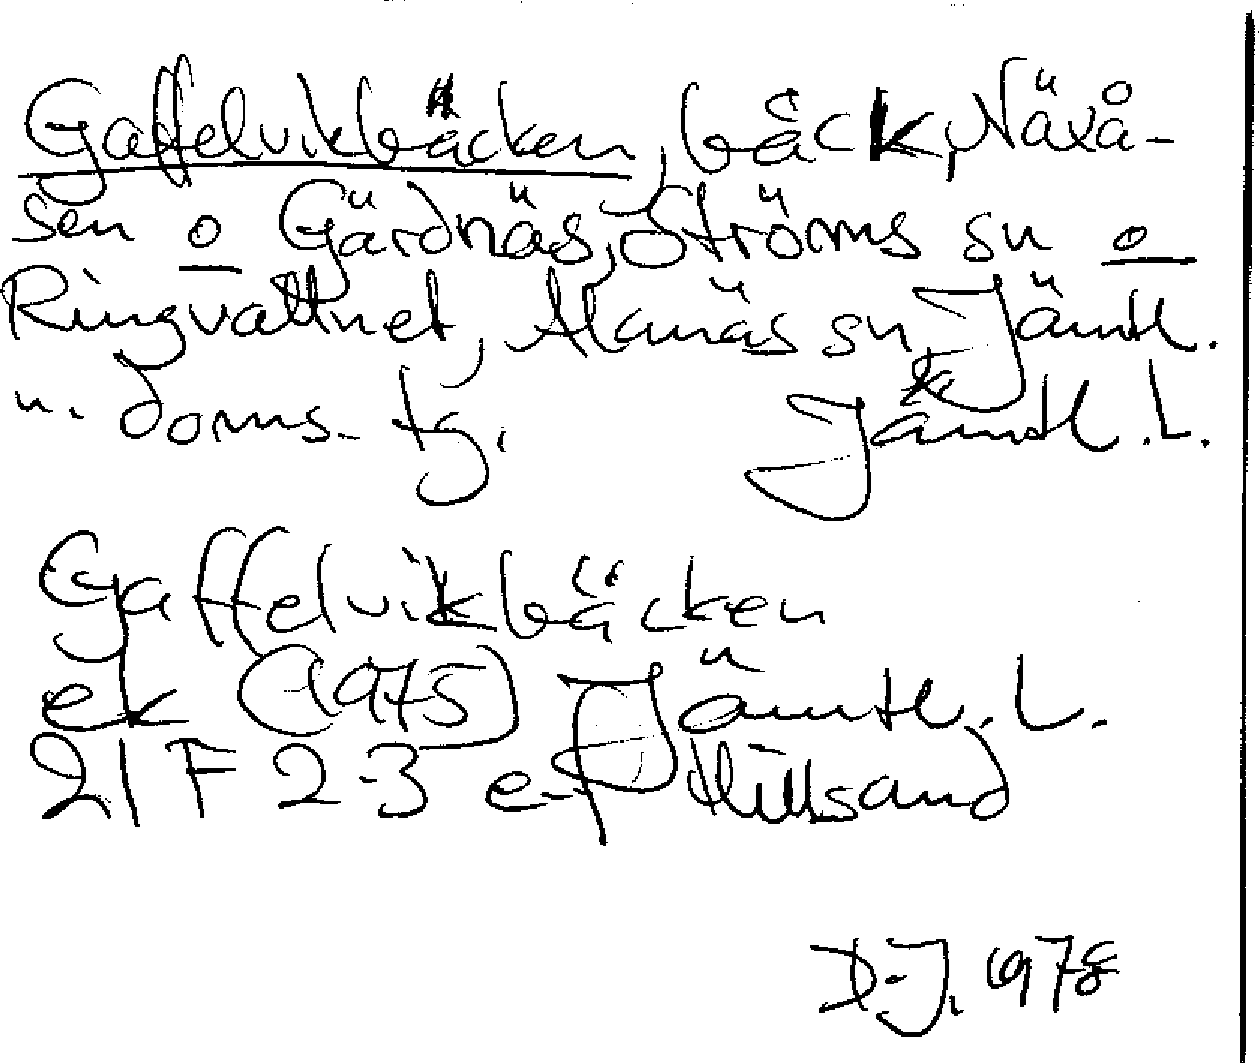 Gaffelvikbäcken, bäck, Näxå-
sen o Gärdnäs, Ströms sn o
Ringvattnet, Alanäs sn, Jämtl.
n. doms. tg. Jämtl. L.
Gaffelvikbäcken
ek (1975) Jämtl. L.
21 F 2-3 e-f Hillsand
D-J. 1978